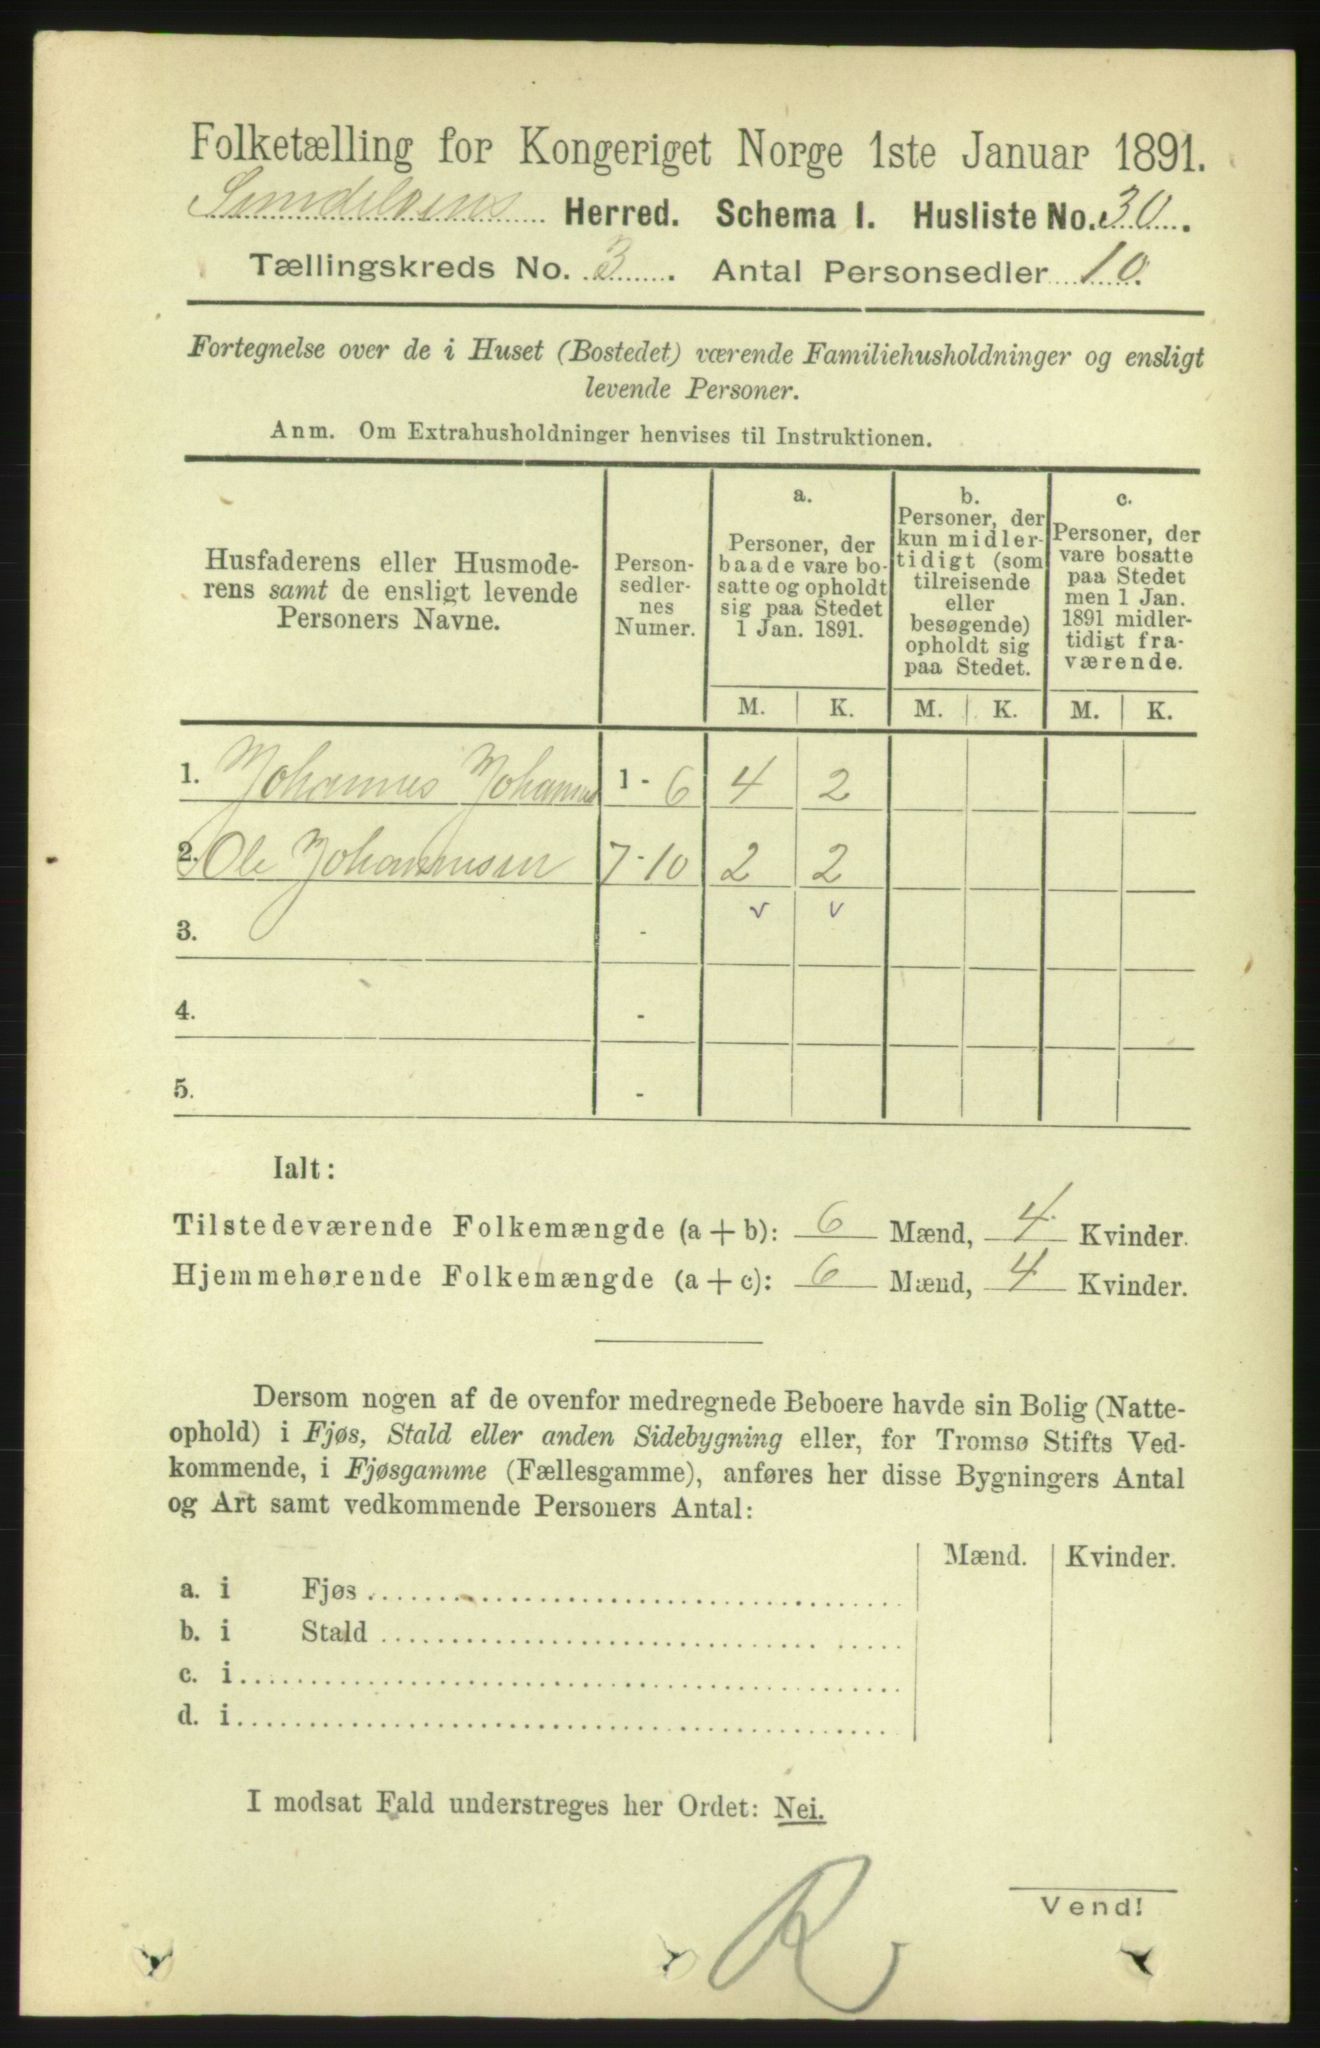 Folketælling for Kongeriget Norge 1ste Januar 1891.
Herred. Schema I. Husliste No. 30.
Tællingskreds No. 3. Antal Personsedler 10.
Fortegnelse over de i Huset (Bostedet) værende Familiehusholdninger og ensligt
levende Personer.
Anm. Om Extrahusholdninger henvises til Instruktionen.
Husfaderens eller Husmode-
rens samt de ensligt levende
Personers Navne.
Person-
sedler-
nes
Numer.
a.
Personer, der
baade vare bo-
satte og opholdt
sig paa Stedet
1 Jan. 1891.
b.
Personer, der
kun midler-
tidigt (som
tilreisende
eller
besøgende)
opholdt sig
paa Stedet.
c.
Personer, der
vare bosatte
paa Stedet
men 1 Jan.
1891 midler-
tidigt fra-
værende.
M. K. M. K. M. K.
1. Johannes 1 - 6 4 2
2. Ole Johannesen 7-10 2 2
v v
3. -
4. -
5. -
Ialt:
Tilstedeværende Folkemængde (a + b): 6 Mænd, 4 Kvinder.
Hjemmehørende Folkemængde (a + c): 6 Mænd, 4 Kvinder.
Dersom nogen af de ovenfor medregnede Beboere havde sin Bolig (Natte-
ophold) i Fjøs, Stald eller anden Sidebygning eller, for Tromsø Stifts Ved-
kommende, i Fjøsgamme (Fællesgamme), anføres her disse Bygningers Antal
og Art samt vedkommende Personers Antal:
Mænd. Kvinder.
a. i Fjøs
b. i Stald
c. i
d. i
I modsat Fald understreges her Ordet: Nei.
R
Vend!